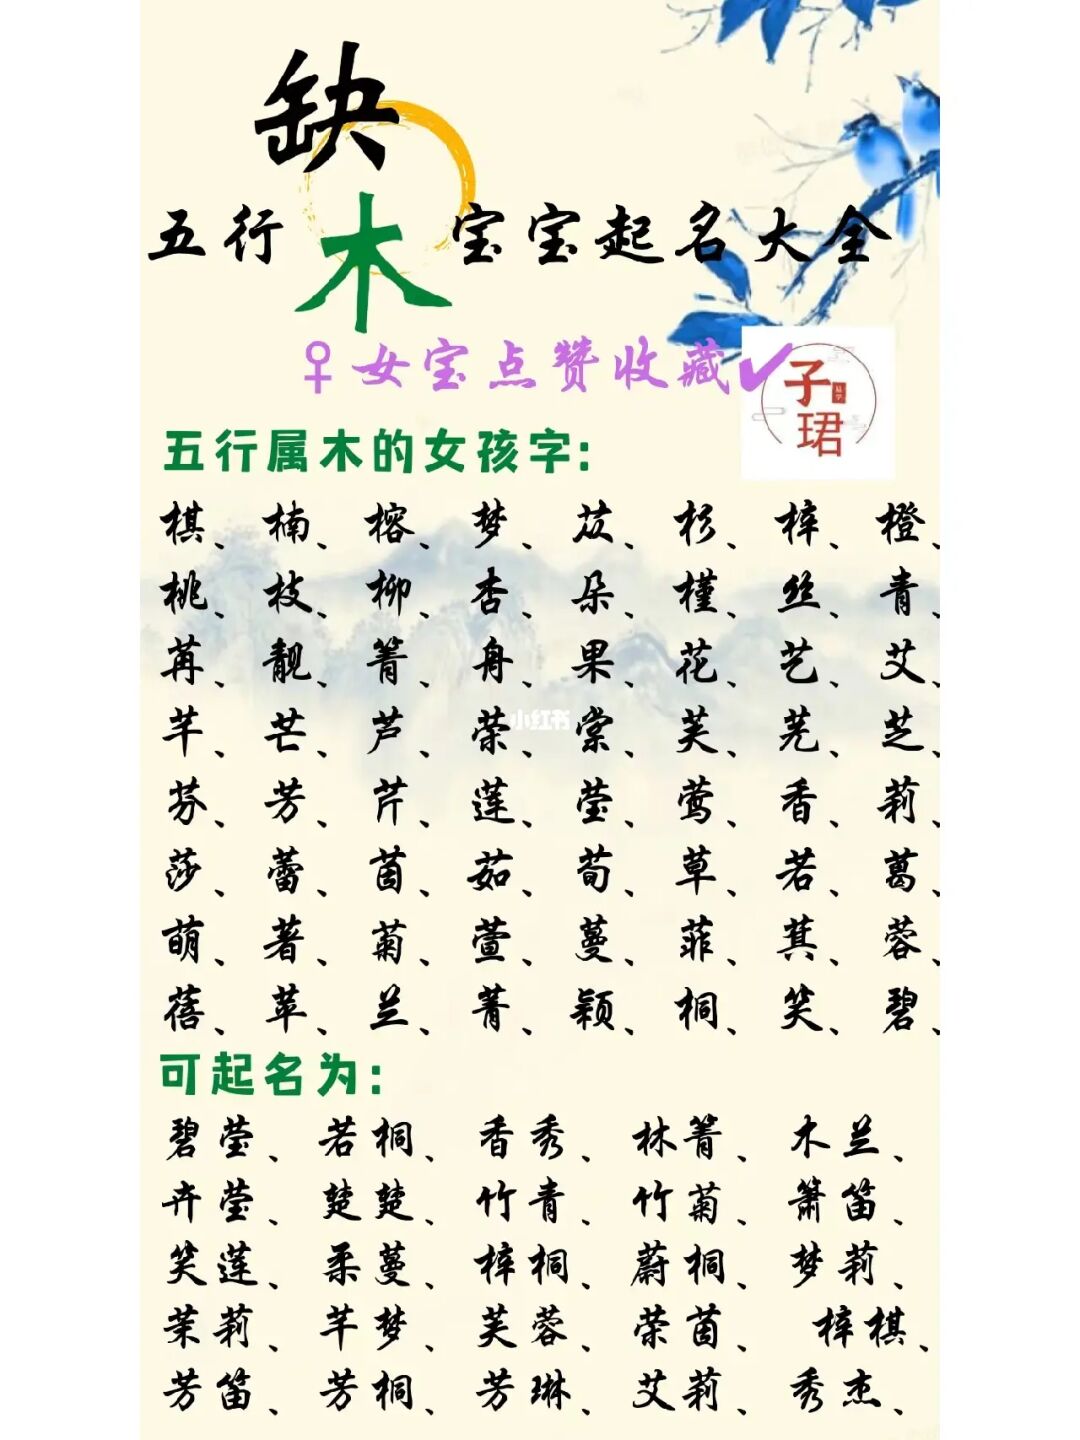 缺
五行木宝宝起名大全
♀女宝点赞收藏✔
子珺
易学
五行属木的女孩字:
棋、楠、榕、梦、苡、杉、梓、橙、
桃、枝、柳、杏、朵、槿、丝、青、
苒、靓、箐、舟、果、花、艺、艾、
芊、芒、芦、荣、棠、芙、芜、芝、
小红书
芬、芳、芹、莲、莹、莺、香、莉、
莎、蕾、茵、茹、荀、草、若、葛、
萌、著、菊、萱、蔓、菲、萁、蓉、
蓓、苹、兰、菁、颖、桐、笑、碧、
可起名为:
碧莹、若桐、香秀、林箐、木兰、
卉莹、楚楚、竹青、竹菊、箫笛、
笑莲、柔蔓、梓桐、蔚桐、梦莉、
茉莉、芊梦、芙蓉、荣茵、梓棋、
芳笛、芳桐、芳琳、艾莉、秀杰、